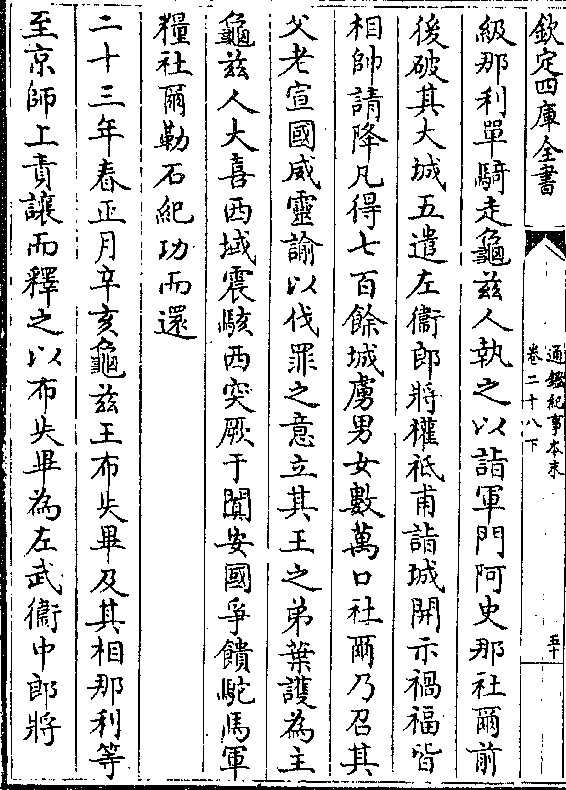 欽定四庫全書
通鑑紀事本末
卷二十八下
五十
級那利單騎走龜兹人執之以詣軍門阿史那社爾前
後破其大城五遣左衞郎將權祇甫詣城開示禍福皆
相帥請降凡得七百餘城虜男女數萬口社爾乃召其
父老宣國威靈諭以伐罪之意立其王之弟葉護為主
龜兹人大喜西域震駭西突厥于闐安國爭饋駝馬軍
糧社爾勒石紀功而還
二十三年春正月辛亥龜兹王布失畢及其相那利等
至京師上責讓而釋之以布失畢為左武衞中郎將